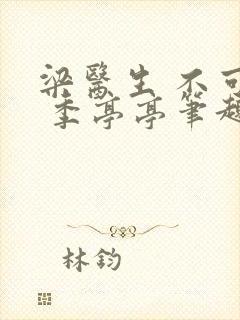 梁医生 不可
季亭亭笔趣
林钧